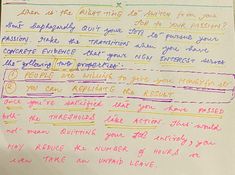 When is the RIGHT TIME to switch from your
JOB to your PASSION?
Don't haphazardly QUIT your JOB to pursue your
PASSION. Make the TRANSITION when you have
CONCRETE EVIDENCE that your NEW INTEREST serve
the following two properties:
① PEOPLE are WILLING to give you MONEY for it
② YOU CAN REPLICATE the RESULT
Once you're satisfied that you have PASSED
both the THRESHOLDS take ACTION. This would
not mean QUITTING your JOB entirely, you
MAY REDUCE the NUMBER of HOURS or
even TAKE an UNPAID LEAVE.